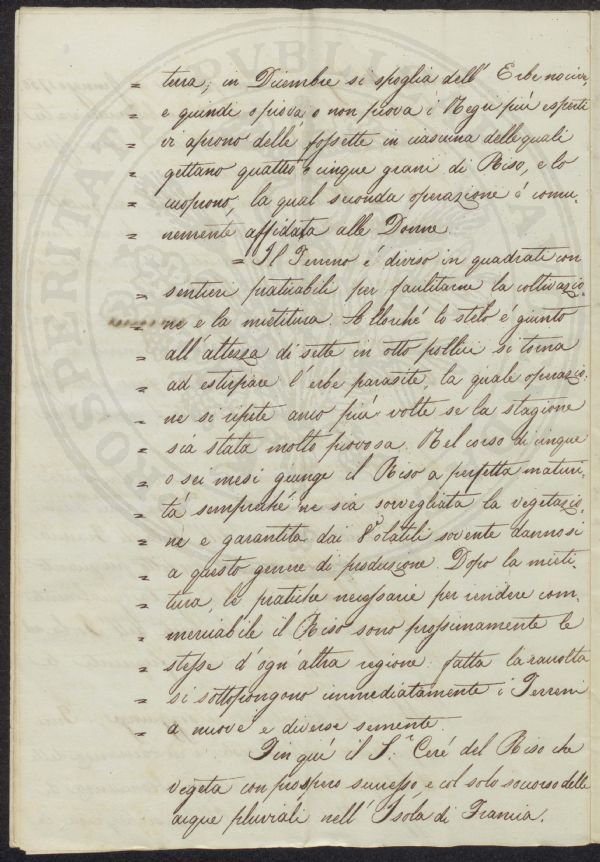 = terra; in Dicembre si spoglia dell' Erbe nocive,
= e quindi o piova o non piova i Negri più esperti
= vi aprono delle fossette in ciascuna delle quali
= gettano quattro o cinque grani di Riso, e lo
= cuoprono, la qual seconda operazione é comu,,
= nemente affidata alle Donne.
= Il Terreno é diviso in quadrati con
= sentieri praticabili per facilitarne la coltivazio,,
= ne e la mietitura. Allorché lo stelo é giunto
= all' altezza di sette in otto pollici si torna
= ad estirpare l' erbe parasite, la quale operazio,,
= ne si ripete anco più volte se la stagione
= sia stata molto piovosa. Nel corso di cinque
= o sei mesi giunge il Riso a perfetta maturi,,
= tà semprechè ne sia sorvegliata la vegetazio,,
= ne e garantita dai Volatili sovente dannosi
= a questo genere di produzione. Dopo la mieti,,
= tura, le pratiche necessarie per rendere com,,
= merciabile il Riso sono prossimamente le
= stesse d' ogn' altra regione: fatta la raccolta
= si sottopongono immediatamente i Terreni
= a nuove e diverse semente.
Fin quì il S.r Ceré del Riso che
vegeta con prospero successo, e col solo soccorso delle
acque pluviali nell' Isola di Francia.
PROSPERITATI PUBLICAE